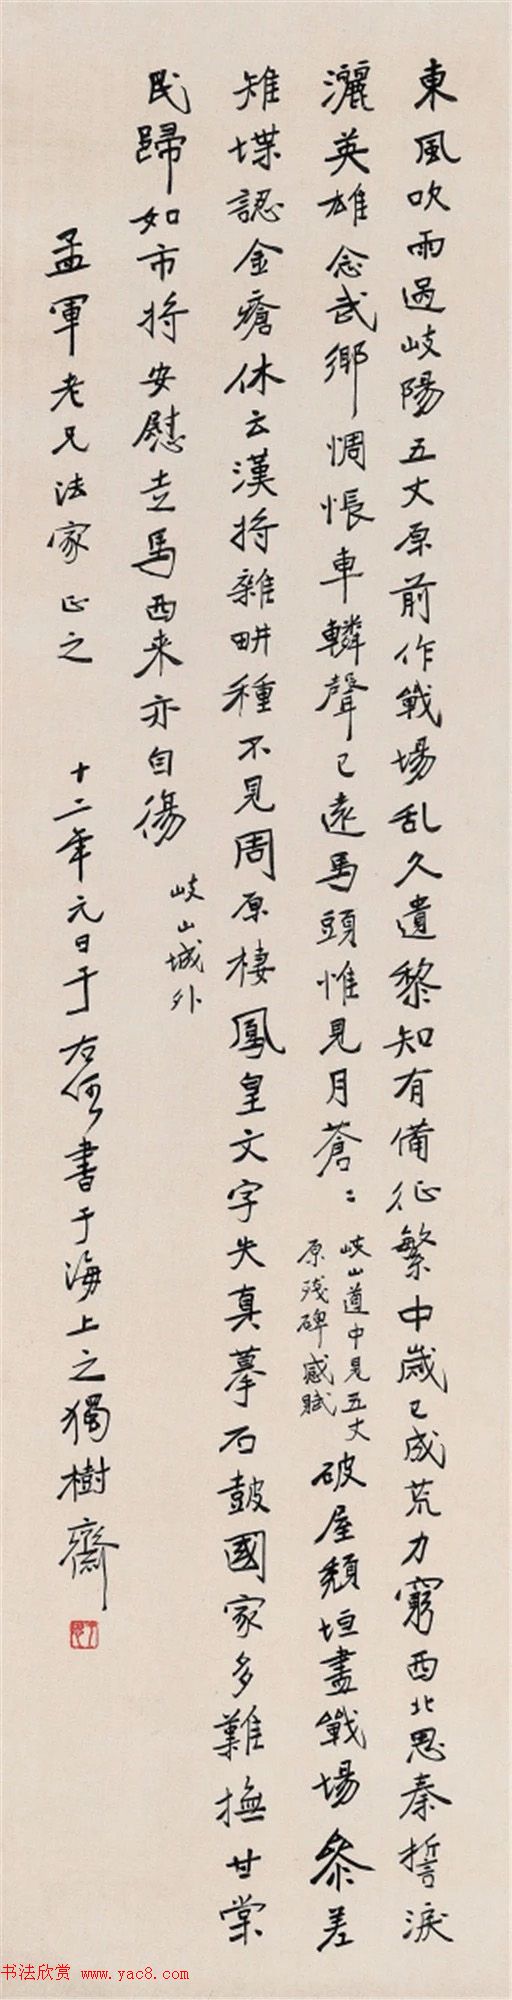 東風吹雨過岐陽五丈原前作戰場乱久遺黎知有備征繁中歲已成荒力窮西北思秦誓淚
灑英雄念武鄉惆悵車轔聲已遠馬頭惟見月蒼〻
岐山道中見五丈
原殘碑感賦
破屋頹垣盡戰場參差
雉堞認金瘡休云漢將雜畊種不見周原棲鳳皇文字失真摹石鼓國家多難撫甘棠
民歸如市將安慰走馬西来亦自傷
岐山城外
孟軍老兄法家正之
十二年元日于右任書于海上之獨樹齋
书法欣赏 www.yac8.com